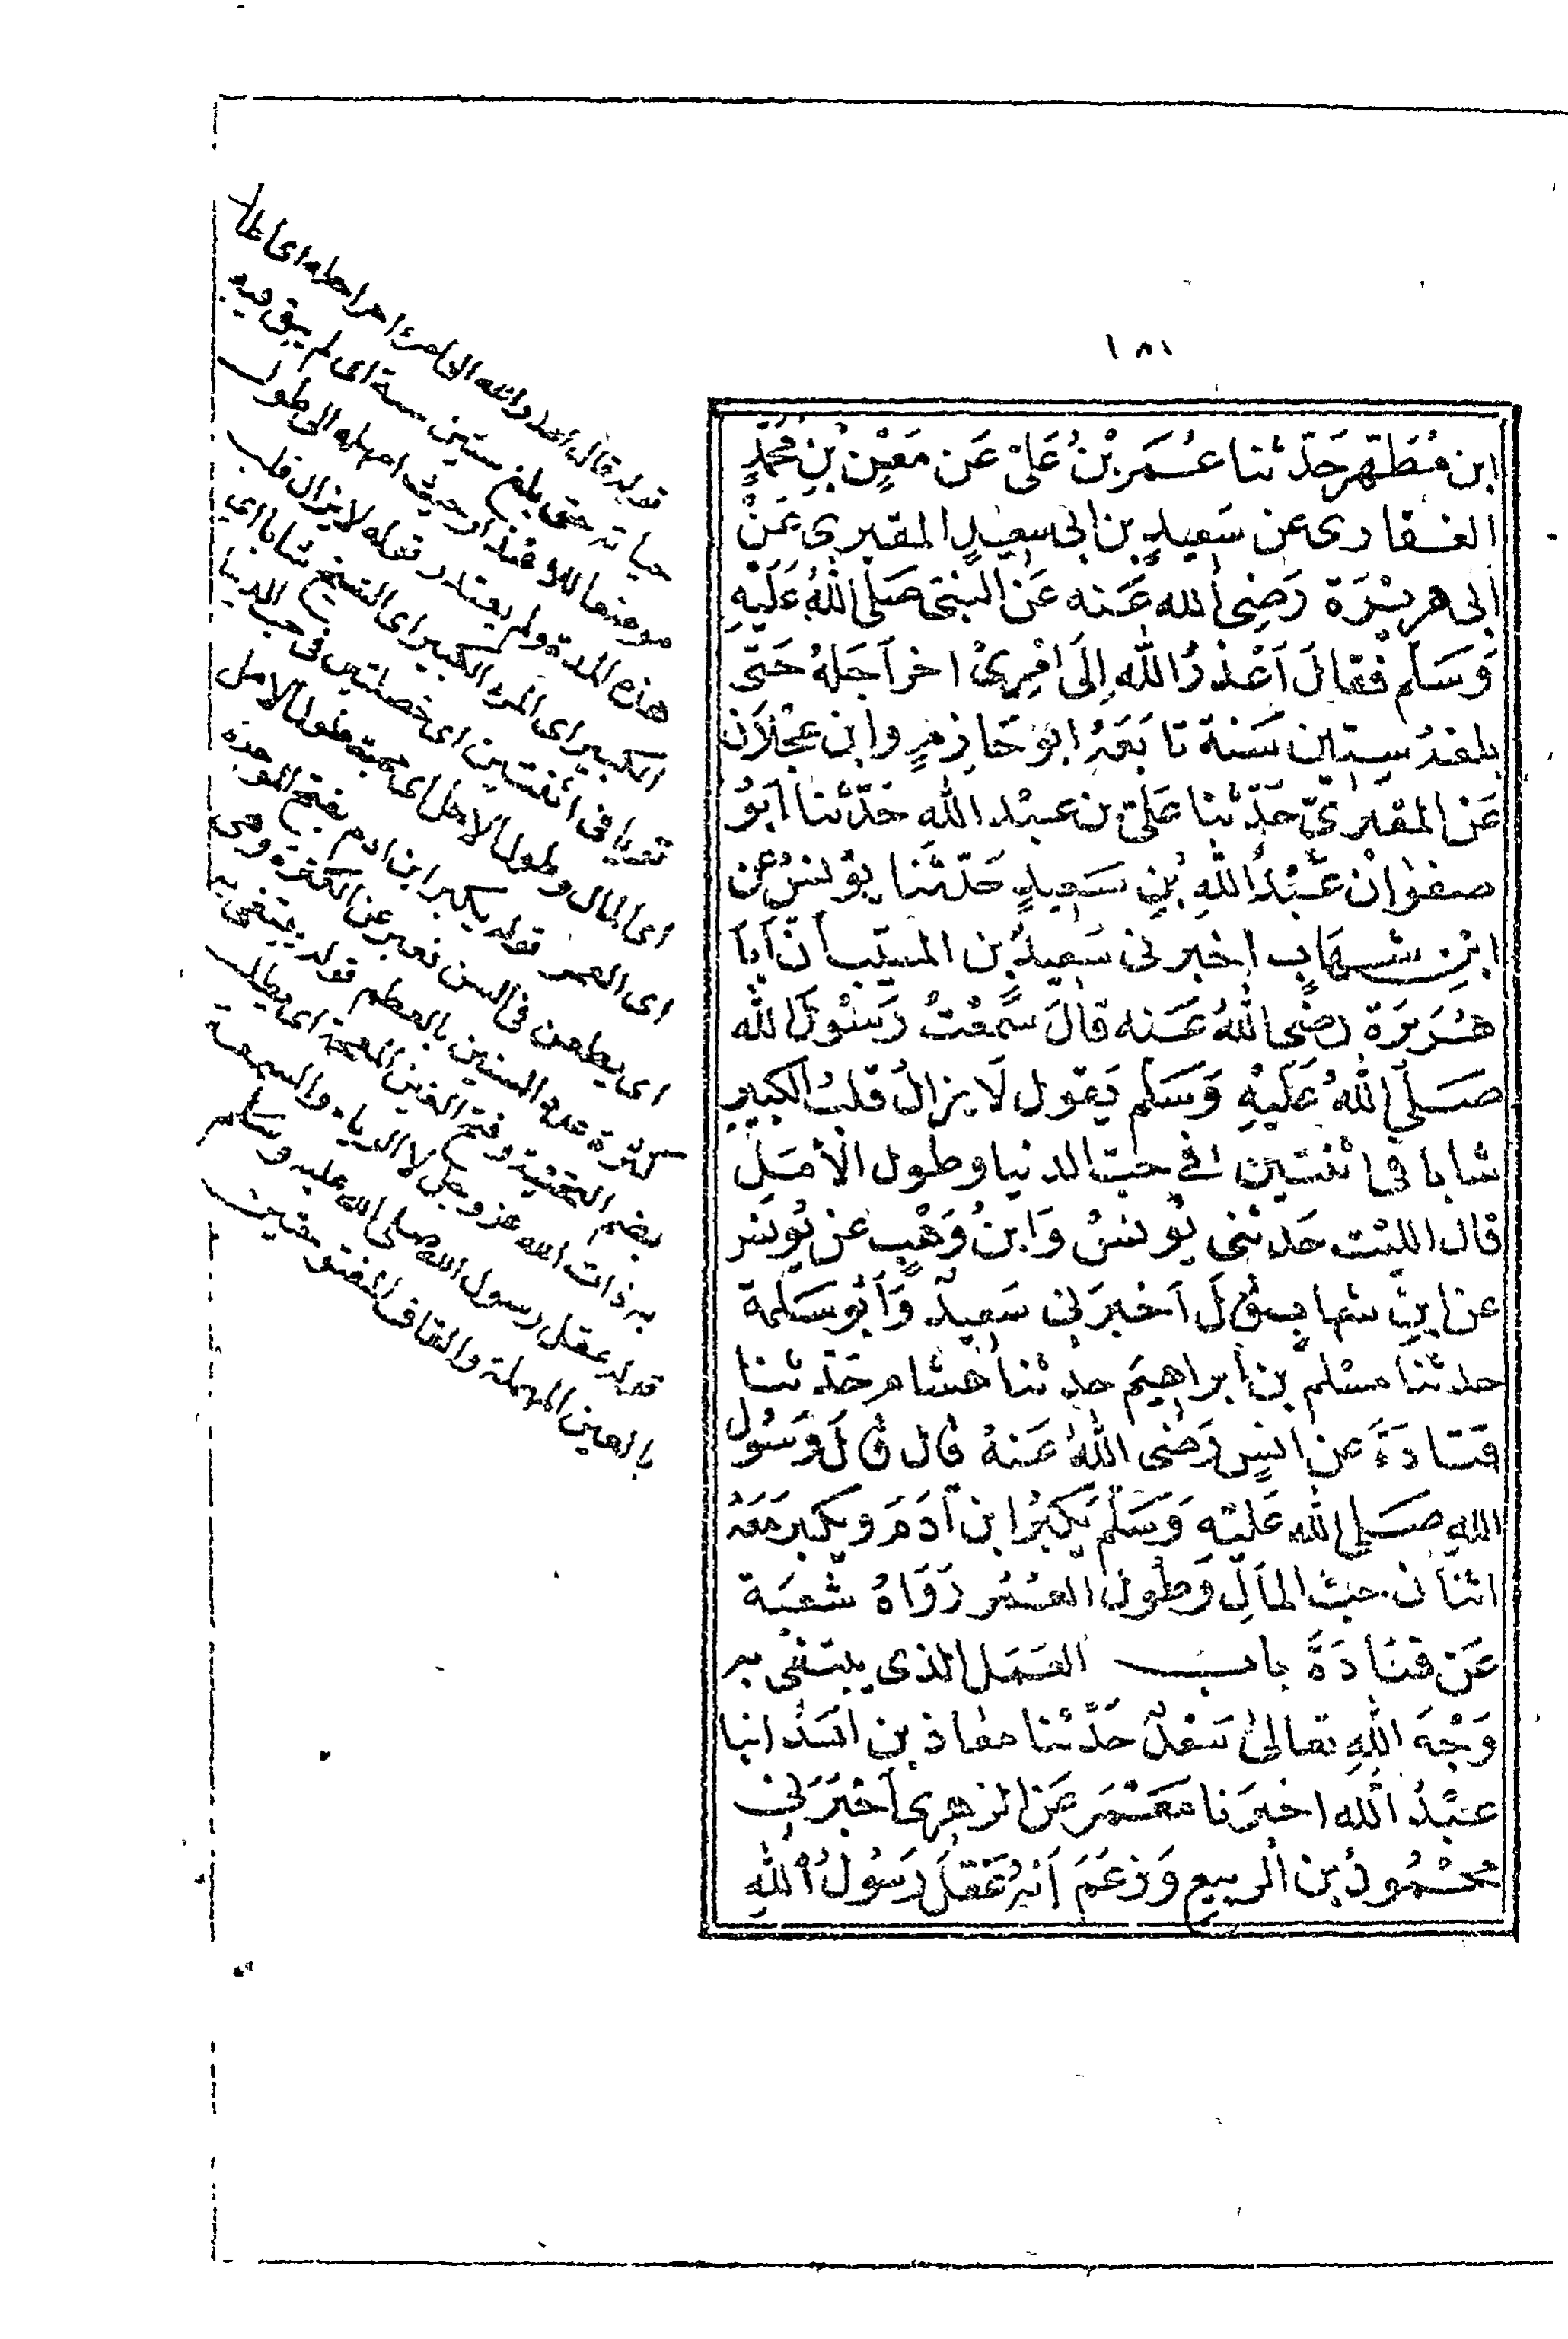 ١٨١
ابن مُطَهّر حَدّثنا عُمَر بْنُ عَلىّ عَن مَعْنِ بْنِ مُحَمَّدٍ
الغفارى عن سَعِيدِ بن ابى سعيدٍ المقبرى عَنْ
أبى هريْرَة رَضِى الله عَنه عَن النبى صَلى اللهُ عَلَيْهِ
وَسَلّم فقالَ اَعْذَرُ الله اِلَى امْرِئ اخر اَجَلهُ حَتّى
بلغهُ سِتين سَنة تا بَعَهُ ابوُ حَازِمٍ وابن عَجْلاَن
عَن المقبرىّ حَدّثنا عَلىّ بن عبْد الله حَدّثنا اَبوُ
صفوان عَبْدُ اللهِ بْنِ سَعِيدٍ حَدّثنَا يوُنسُ عن
ابْنِ شهَابٍ اخبرنى سَعِيدُ بن المسَيّب اَنّ اَبَا
هُرَيرَة رضى اللهُ عَنه قالَ سَمعْتُ رَسُولَ الله
صَلّى اللهُ عَلَيْهِ وَسَلم يَقول لاَ يزالُ قلبُ الكبيرِ
شابا فى اثنتين فى حبّ الدنيا وطول الاَمَلِ
قال الليْث حَدثنى يُونسُ وَابنُ وَهْبٍ عن يُونس
عن ابنِ شهابٍ قالَ اَخبرَنى سَعِيدٌ وَاَبُو سَلمة
حدثنا مسْلم بن ابراهيمَ حدثنا هشام حَدثنا
قتادَةَ عن انسٍ رَضى اللهُ عَنهُ قال قالَ رَسُول
اللهِ صَلى الله عَليْهِ وَسَلّم يَكبَرُ ابن آدَمَ ويكبر مَعَهُ
اثنان حبّ المالِ وَطول العُمُر رَوَاهُ شُعبَة
عَن قتَادَةَ باب العَمَل الذى يبتغى به
وَجْهَ اللهِ تعالى سَعْدٌ حَدّثنا معاذ بن اسَد انبا
عبْدُ الله اخبرَنا مَعْمَر عَن الزهرى اَخبَرَنى
مَحْمُودُ بن الربيع وَزَعَمَ اَنهُ عَقلَ رَسُولَ اللهِ
قوله قال اعذر الله الى امرئ اخر اجله اى اطال
حياته حتى بلغ ستين سنة اى لم يبق فيه
موضعا للاعتذار حيث امهله الى طول
هذه المدة ولم يعتذر قوله لا يزال قلب
الكبير اى المرء الكبير اى الشيخ شابا اى
قويا فى اثنتين اى خصلتين فى حب الدنيا
اى المال وطول الامل اى محبة طول الامل
اى العمر قوله يكبر ابن ادم بفتح الموحدة
اى يطعن فى السن فعبر عن الكثرة وهى
كثرة عدد السنين بالعظم قوله يبتغى به
بضم التحتية وفتح الغين المعجمة اى يطلب
به ذات الله عز وجل لا الرياء والسمعة
قوله عقل رسول الله صلى الله عليه وسلم
بالعين المهملة والقاف المفتوحتين